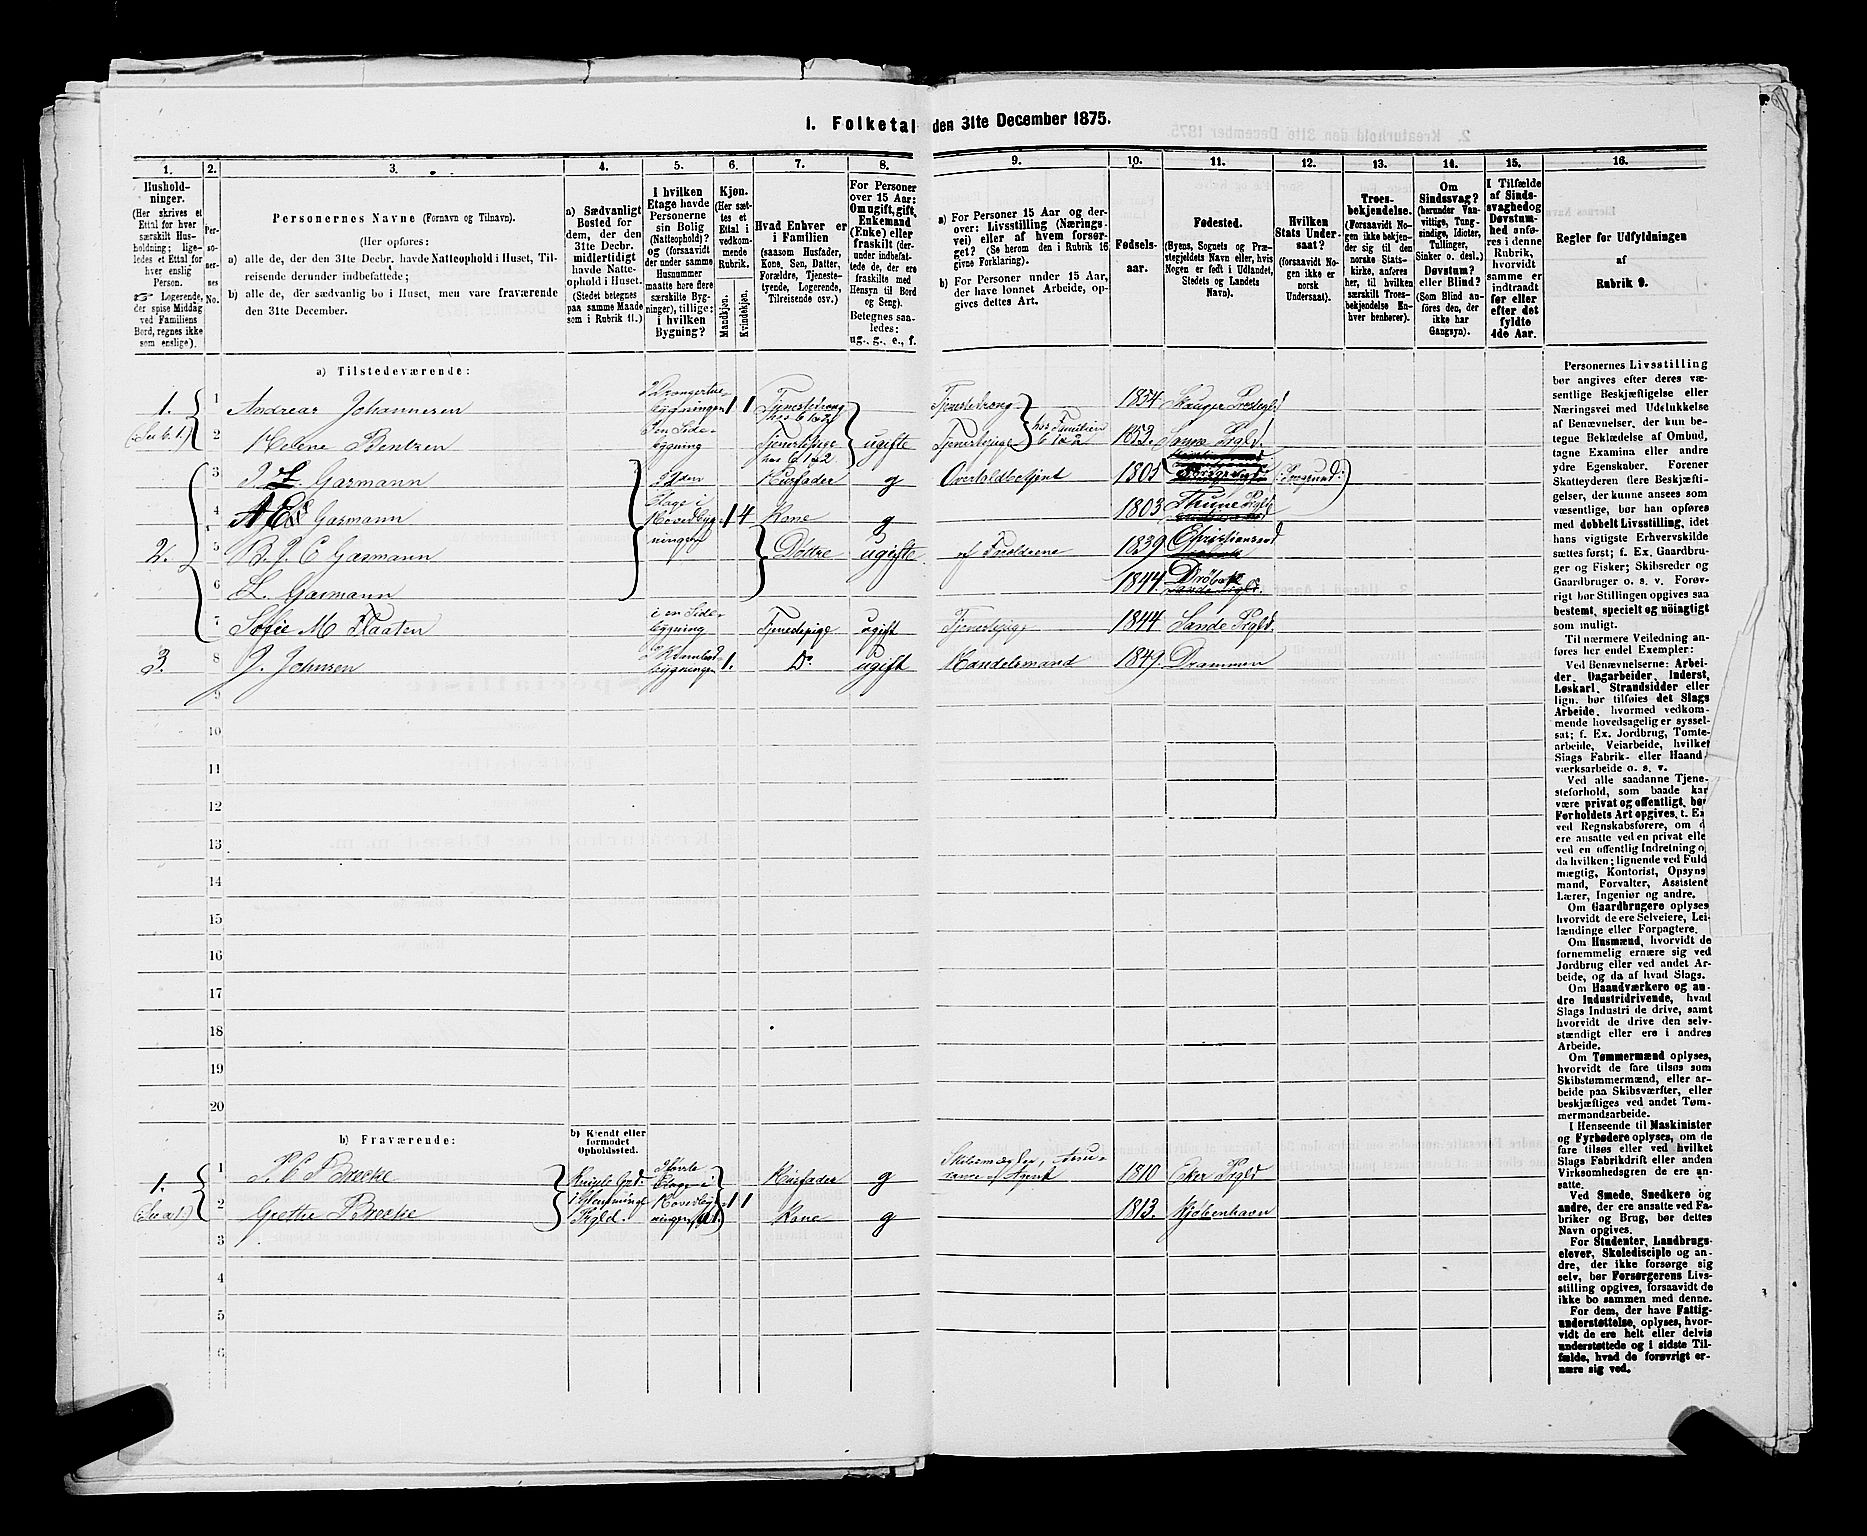 1. Folketal den 31te December 1875.
1.
Hushold-
ninger.
(Her skrives et
Ettal for hver
særskilt Hus-
holdning; lige-
ledes et Ettal for
hver enslig
Person.
Logerende,
der spise Middag
ved Familiens
Bord, regnes ikke
som enslige).
2.
Per-
so-
ner-
nes
No.
3.
Personernes Navne (Fornavn og Tilnavn).
(Her opføres:
a) alle de, der den 31te Decbr. havde Natteophold i Huset, Til-
reisende derunder indbefattede;
b) alle de, der sædvanlig bo i Huset, men vare fraværende
den 31te December.
4.
a) Sædvanligt
Bosted for
dem, der den
31te Decbr.
midlertidigt
havde Natte-
ophold i Huset.
(Stedet betegnes
paa samme Maade
som i Rubrik 11.)
5.
I hvilken
Etage havde
Personerne
sin Bolig
(Natteophold)?
og (forsaavidt
der under samme
Husnummer
maatte høre flere
særskilte Byg-
ninger), tillige:
i hvilken
Bygning?
6.
Kjøn.
(Her sæt-
tes et
Ettal i
vedkom-
mende
Rubrik.
Mandkjøn.
Kvindekjøn.
7.
Hvad Enhver er
i Familien
(saasom Husfader,
Kone, Søn, Datter,
Forældre, Tjeneste-
tyende, Logerende,
Tilreisende osv.)
8.
For Personer
over 15 Aar:
Om ugift, gift,
Enkemand
(Enke) eller
fraskilt (der-
under indbefat-
tede de, der ere
fraskilte med
Hensyn til Bord
og Seng).
Betegnes saa-
ledes:
ug., g., e., f.
9.
a) For Personer 15 Aar og der-
over: Livsstilling (Nærings-
vei) eller af hvem forsør-
get? (Se herom den i Rubrik 16
givne Forklaring).
b) For Personer under 15 Aar,
der have lønnet Arbeide, op-
gives dettes Art.
10.
Fødsels-
aar.
11.
Fødested.
(Byens, Sognets og Præ-
stegjeldets Navn eller, hvis
Nogen er født i Udlandet,
Stedets og Landets
Navn).
12.
Hvilken
Stats Under-
saat?
(forsaavidt No-
gen ikke er
norsk
Undersaat).
13.
Troes-
bekjendelse.
(Forsaavidt No-
gen ikke bekjen-
der sig til den
norske Stats-
kirke, anføres
her, til hvilken
særskilt Troes-
bekjendelse En-
hver henhører).
14.
Om
Sindssvag?
(herunder Van-
vittige, Tung-
sindige, Idioter,
Tullinger,
Sinker o. desl.)
Døvstum?
eller Blind?
(Som Blind an-
føres den, der
ikke har
Gangsyn).
15.
I Tilfælde
af Sinds-
svaghed og
Døvstum-
hed anfø-
res i denne
Rubrik,
hvorvidt
samme er
indtraadt
før eller
efter det
fyldte
4de Aar.
16.
Regler for Udfyldningen
af
Rubrik 9.
a) Tilstedeværende:
1. 1 Andreas Johannesen 1 1 Tjenestedreng hos b 1 & 2 Tjenestedreng 1834
(See b. 1.) 2 Helene Bentzen bygning Tjenestepige hos b 1 & 2 ugifte Tjenestepige hos Familien b 1 & 2 1853
3 Garmann Husfader g Overtoldbetjent 1805
4 Garmann Etage i Hovedbyg- 1 4 Kone g 1803
2. 5 B. J. C Garmann ningen Døttre ugifte af Forældrene 1839 Christiansand
6 L. Garmann 1844 Drøbak
7 Sofie M Flaaten i en Side- bygning Tjenestepige ugift Tjenestepige 1844 Sande Prgld.
3. 8 J. Johnsen 1. Do ugift Handelsmand 1849. Drammen
9
10
11
12
13
14
15
16
17
18
19
20
b) Fraværende:
b) Kjendt eller
formodet
Opholdssted.
1. 1 Etage i Husfader g Skibsmægler, Assu- rance & Agent 1810 Prgld
(See a 1.) 2 Grethe Prgld. Hovedbyg- ningen 1 1 Kone g 1813. Kjøbenhavn
3
4
5
6
Personernes Livsstilling
bør angives efter deres væ-
sentlige Beskjæftigelse eller
Næringsvei med Udelukkelse
af Benævnelser, der kun be-
tegne Beklædelse af Ombud,
tagne Examina eller andre
ydre Egenskaber. Forener
Skatteyderen flere Beskjæfti-
gelser, der kunne ansees som
væsentlige, bør han opføres
med dobbelt Livsstilling, idet
hans vigtigste Erhvervskilde
sættes først; f. Ex. Gaardbru-
ger og Fisker; Skibsreder og
Gaardbruger o. s. v. Forøv-
rigt bør Stillingen opgives saa
bestemt, specielt og nøiagtigt
som muligt.
Til nærmere Veiledning an-
føres her endel Exempler:
Ved Benævnelserne: Arbei-
der, Dagarbeider, Inderst,
Løskarl, Strandsidder eller
lign. bør tilføies det Slags
Arbeide, hvormed vedkom-
mende hovedsagelig er syssel-
sat; f. Ex. Jordbrug, Tomte-
arbeide, Veiarbeide, hvilket
Slags Fabrik- eller Haand-
værksarbeide o. s. v.
Ved alle saadanne Tjene-
steforhold, som baade kan
være privat og offentligt, bør
Forholdets Art opgives, t. Ex
ved Regnskabsførere, om d
ere ansatte ved en privat elle
ved en offentlig Indretning o
da hvilken; lignende ved Fuld
mægtig, Kontorist, Opsyns
mand, Forvalter, Assistent
Lærer, Ingeniør og andre.
Om Gaardbrugere oplyses
hvorvidt de ere Selveiere, Lei-
lændinge eller Forpagtere.
Om Husmænd, hvorvidt de
fornemmelig ernære sig ved
Jordbrug eller ved andet Ar-
beide, og da af hvad Slags.
Om Haandværkere og an-
dre Industridrivende, hvad
Slags Industri de drive, samt
hvorvidt de drive den selv-
stændigt eller ere i andres
Arbeide.
Om Tømmermænd oplyses,
hvorvidt de fare tilsøs som
Skibstømmermænd, eller ar-
beide paa Skibsværfter, eller
beskjæftiges ved andet Tøm-
mermandsarbeide.
I Henseende til Maskinister
og Fyrbødere oplyses, om de
fare tilsøs eller ved hvilket
Slags Fabrikdrift eller anden
Virksomhedsgren de ere an-
satte.
Ved Smede, Snedkere og
andre, der ere ansatte ved Fa-
briker og Brug, bør dettes
Navn opgives.
For Studenter, Landbrugs-
elever, Skoledisciple og an-
dre, der ikke forsørge sig
selv, bør Forsørgerens Livs-
stilling opgives, forsaavidt de
ikke bo sammen med denne.
For dem, der have Fattig-
understøttelse, oplyses, hvor-
vidt de ere helt eller delvis
understøttede og i sidste Til-
fælde, hvad de forøvrigt er-
nære sig ved.